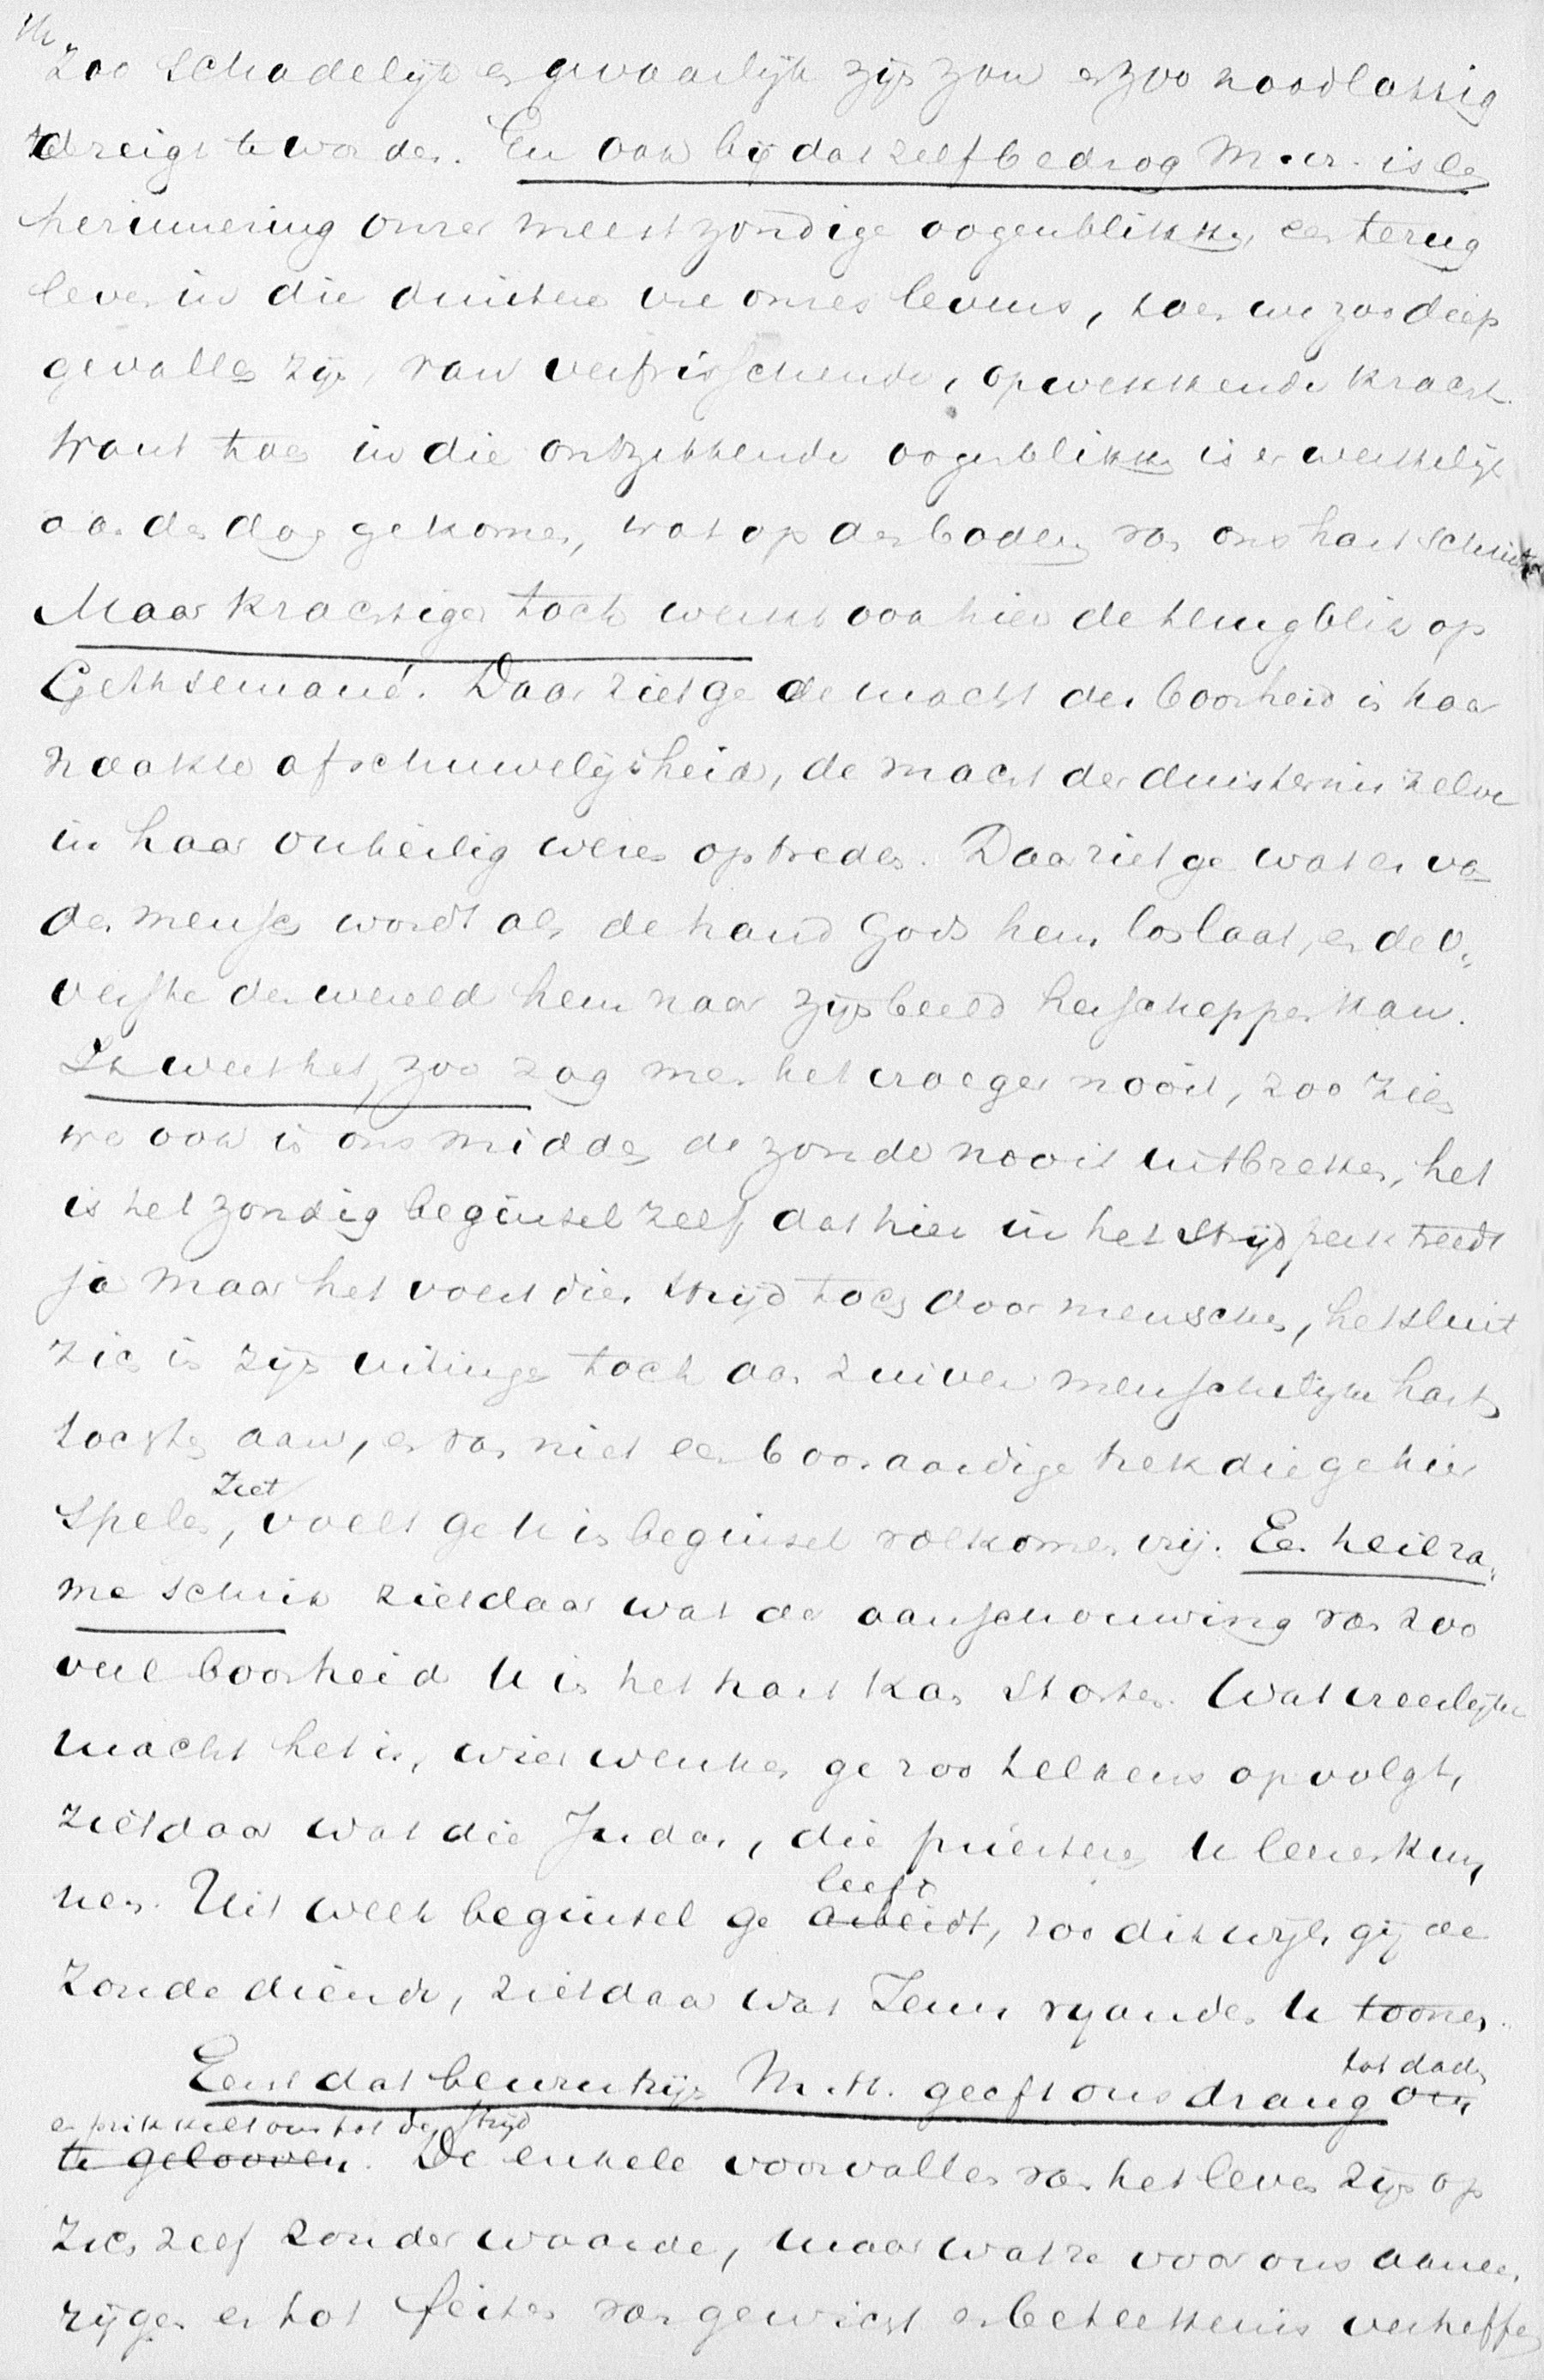 zoo schadelijk en gevaarlijk zijn zou en zoo noodlottig
dreigt te worden. En ook bij dat zelfbedrog M. er. is de
herinnering onzer meest zondige oogenblikken, een terug
leven in die duistere ure onzes levens, toen we zoo diep
gevallen zijn, van verfrisschende, opwekkende kracht.
Want toen in die ontzettende oogenblikken is er werkelijk
aan den dag gekomen, wat op den bodem van ons hart schuilt
Maar krachtiger toch werkt ook hier de terugblik op
Gethsemané. Daar ziet ge de macht der boosheid in haar
naakte afschuwelijkheid, de macht der duisternis zelve
in haar onheilig wezen optreden. Daar ziet ge wat er van
den mensch wordt als de hand Gods hem loslaat, en de o„
verste der wereld hem naar zijn beeld herscheppen kan.
Ik weet het, zoo zag men het vroeger nooit, zoo zien
we ook in ons midden de zonde nooit uitbreken, het
is het zondig beginsel zelf dat hier in het strijdperk treedt
ja maar het voert dien strijd toch door menschen, het sluit
zich in zijn uitingen toch aan zuiver menschelijke harts
tochten aan, en van niet een boosaardige trek die ge hier
ziet
spelen, voelt ge u in beginsel volkomen vrij. Een heilza„
me schrik ziet daar wat de aanschouwing van zoo
veel boosheid u in het hart kan storten. Wat vreeslijke
macht het is, wier wenken ge zoo telkens opvolgt,
ziet daar wat die Judas, die priesters u leeren kun„
nen. Uit welk beginsel ge arbeidt, zoo dikwijls gij de
leeft
zonde diende, ziet daar wat Jezus vijanden u toonen.
Eerst dat bewustzijn M. H. geeft ons drang om
tot daden
en prikkelt ons tot den strijd
te gelooven. De enkele voorvallen van het leven zijn op
zich zelf zonder waarde, maar wat ze voor ons aaneen
rijgen en tot feiten van gewicht en beteekenis verheffen